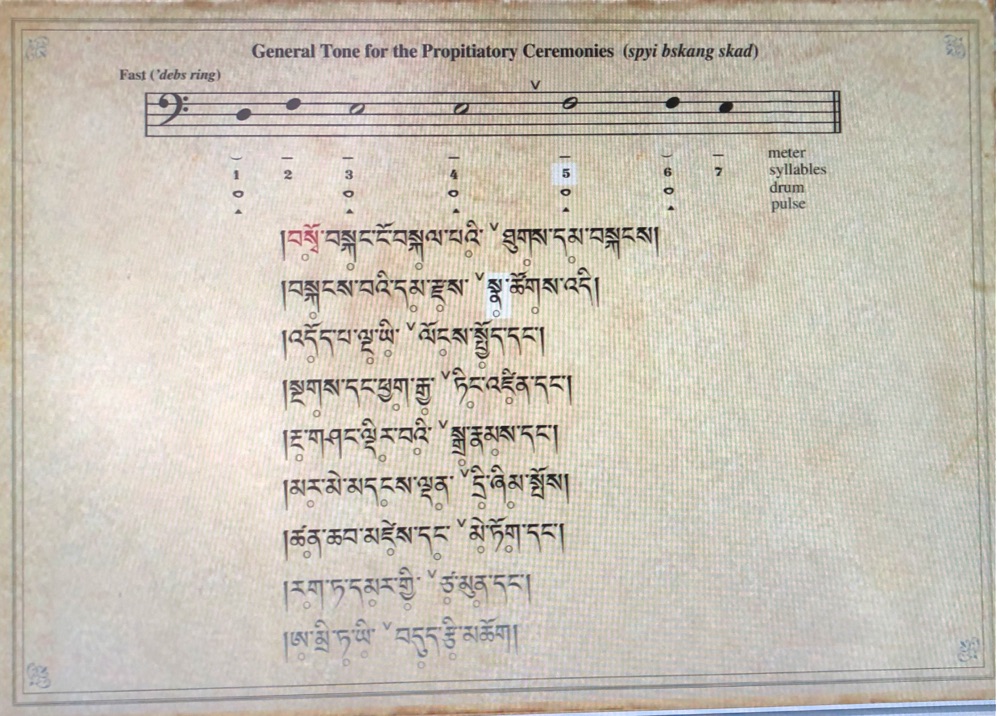 General Tone for the Propitiatory Ceremonies (spyi bskang skad)
Fast ('debs ring)
V
meter
1 2 3 4 5 6 7 syllables
drum
pulse
།བསྭོ་བསྐང་ངོ་བསྐུལ་པའི་ ˅ ཐུགས་དམ་བསྐངས།
།བསྐངས་བའི་དམ་རྫས་ ˅ སྣ་ཚོགས་འདི།
།འདོད་པ་ལྔ་ཡི་ ˅ ལོངས་སྤྱོད་དང་།
།སྔགས་དང་ཕྱག་རྒྱ་ ˅ ཏིང་འཛིན་དང་།
།རྔ་གཤང་ལྡིར་བའི་ ˅ སྒྲ་རྣམས་དང་།
།མར་མེ་མདངས་ལྡན་ ˅ དྲི་ཞིམ་སྤོས།
།ཚན་ཆབ་མཛེས་དང་ ˅ མེ་ཏོག་དང་།
།རག་ཏ་དམར་གྱི་ ˅ ཙུ་མུན་དང་།
།ཨ་མྲི་ཏ་ཡི་ ˅ བདུད་རྩི་མཆོག།